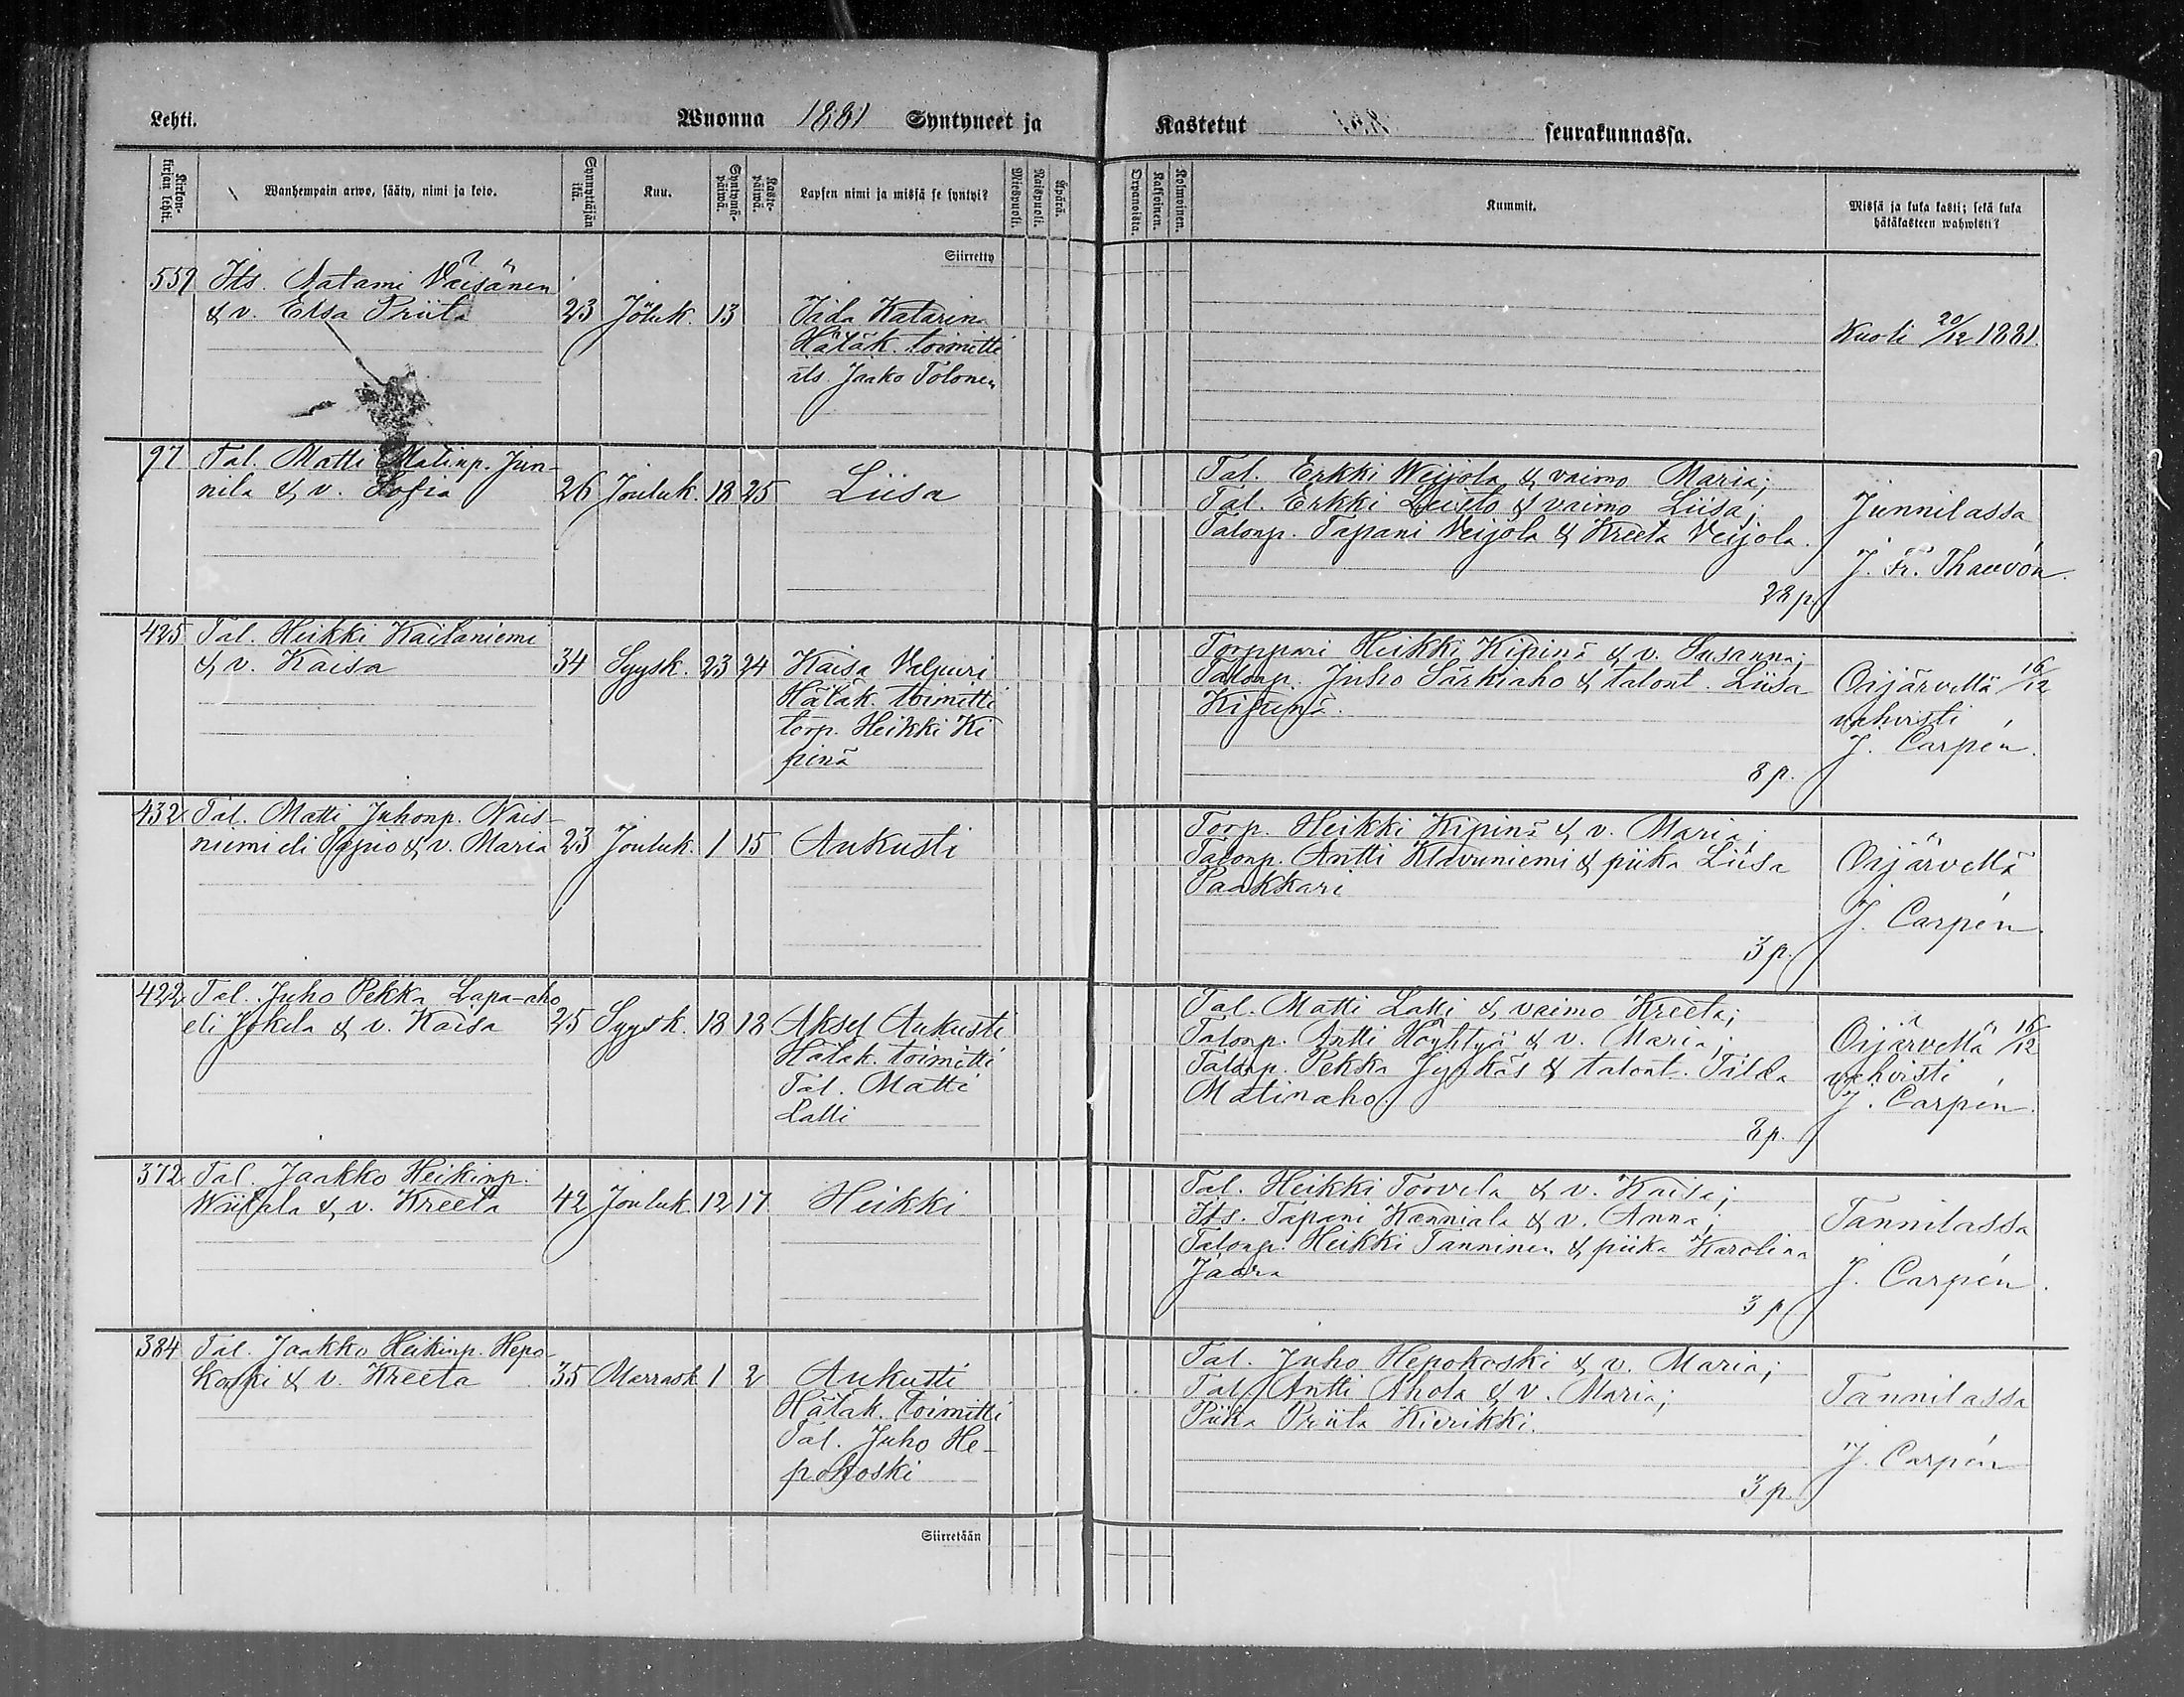 Lehti.
Wuonna 1881 Syntyneet ja
Kastetut
seurakunnassa.
Kirkon-
kirjan lehti.
Wanhempain arwo, sääty, nimi ja koto.
Synnyttäjän
ikä.
Kuu.
Syntymä-
päiwä.
Kaste-
päiwä.
Lapsen nimi ja missä se syntyi?
Miespuoli.
Naispuoli.
Äpärä.
Kaksoinen.
Kolmoinen.
Kummit.
Missä ja kuka kasti; sekä kuka
hätäkasteen wahwisti?
Siirretty
559 Its. Aatami Väisänen
& v. Elsa Priita 23 Jöluk. 13 Iida Katarina
Hätäk. toimitti
its. Jaako Tolonen
Kuoli 20/12 1881.
97 Tal. Matti Matinp. Jun-
nila & v. Sofia 26 Jouluk. 18 25 Liisa
Tal. Erkki Weijola & vaimo Maria;
Tal. Erkki & vaimo Liisa;
Talonp. Tapani Veijola & Kreeta Veijola.
28 p.
Junnilassa
J. Fr. Thauvón.
425 Tal. Heikki Kaitaniemi
& v. Kaisa 34 Syysk. 23 24 Kaisa Valpuri
Hätäk. toimitti
torp. Heikki Ki
pinä
Torppari Heikki Kipinä & v. Susanna;
Talonp. Juho Särkiaho & talont. Liisa
Kipinä.
8 p.
Oijärvellä 16/12
vahvisti
J. Carpén.
432 Tal. Matti Juhonp. Näis-
niemi eli Tapio & v. Maria 23 Jouluk. 1 15 Aukusti
Torp. Heikki Kipinä & v. Maria;
Talonp. Antti Klavuniemi & piika Liisa
Paakkari
3 p.
Oijärvellä
J. Carpén.
422 Tal. Juho Pekka Lapa-aho
eli Jokela & v. Kaisa 25 Syysk. 18 18 Aksel Aukusti
Hätäk. toimitti
Tal. Matti
Lalli
Tal. Matti Lalli & vaimo Kreeta;
Talonp. Antti Höyhtyä & v. Maria;
Talonp. Pekka Jyrkäs & talont. Tilda
Matinaho.
8 p.
Oijärvellä 16/12
vahvisti
J. Carpén.
372 Tal. Jaakko Heikinp.
Wiitala & v. Kreeta 42 Jouluk. 12 17 Heikki
Tal. Heikki Torvela & v. Kaisa;
Its. Tapani Kanniala & v. Anna;
Talonp. Heikki Tanninen & piika Karolina
Jaara
3 p.
Tannilassa
J. Carpén.
384 Tal. Jaakko Heikinp. Hepo-
koski & v. Kreeta 35 Marrask. 1 2 Aukusti
Hätäk. toimitti
Tal. Juho He-
pokoski
Tal. Juho Hepokoski & v. Maria;
Tal. Antti Ahola & v. Maria;
Piika Priita Kierikki.
3 p.
Tannilassa
J. Carpén
Siirretään